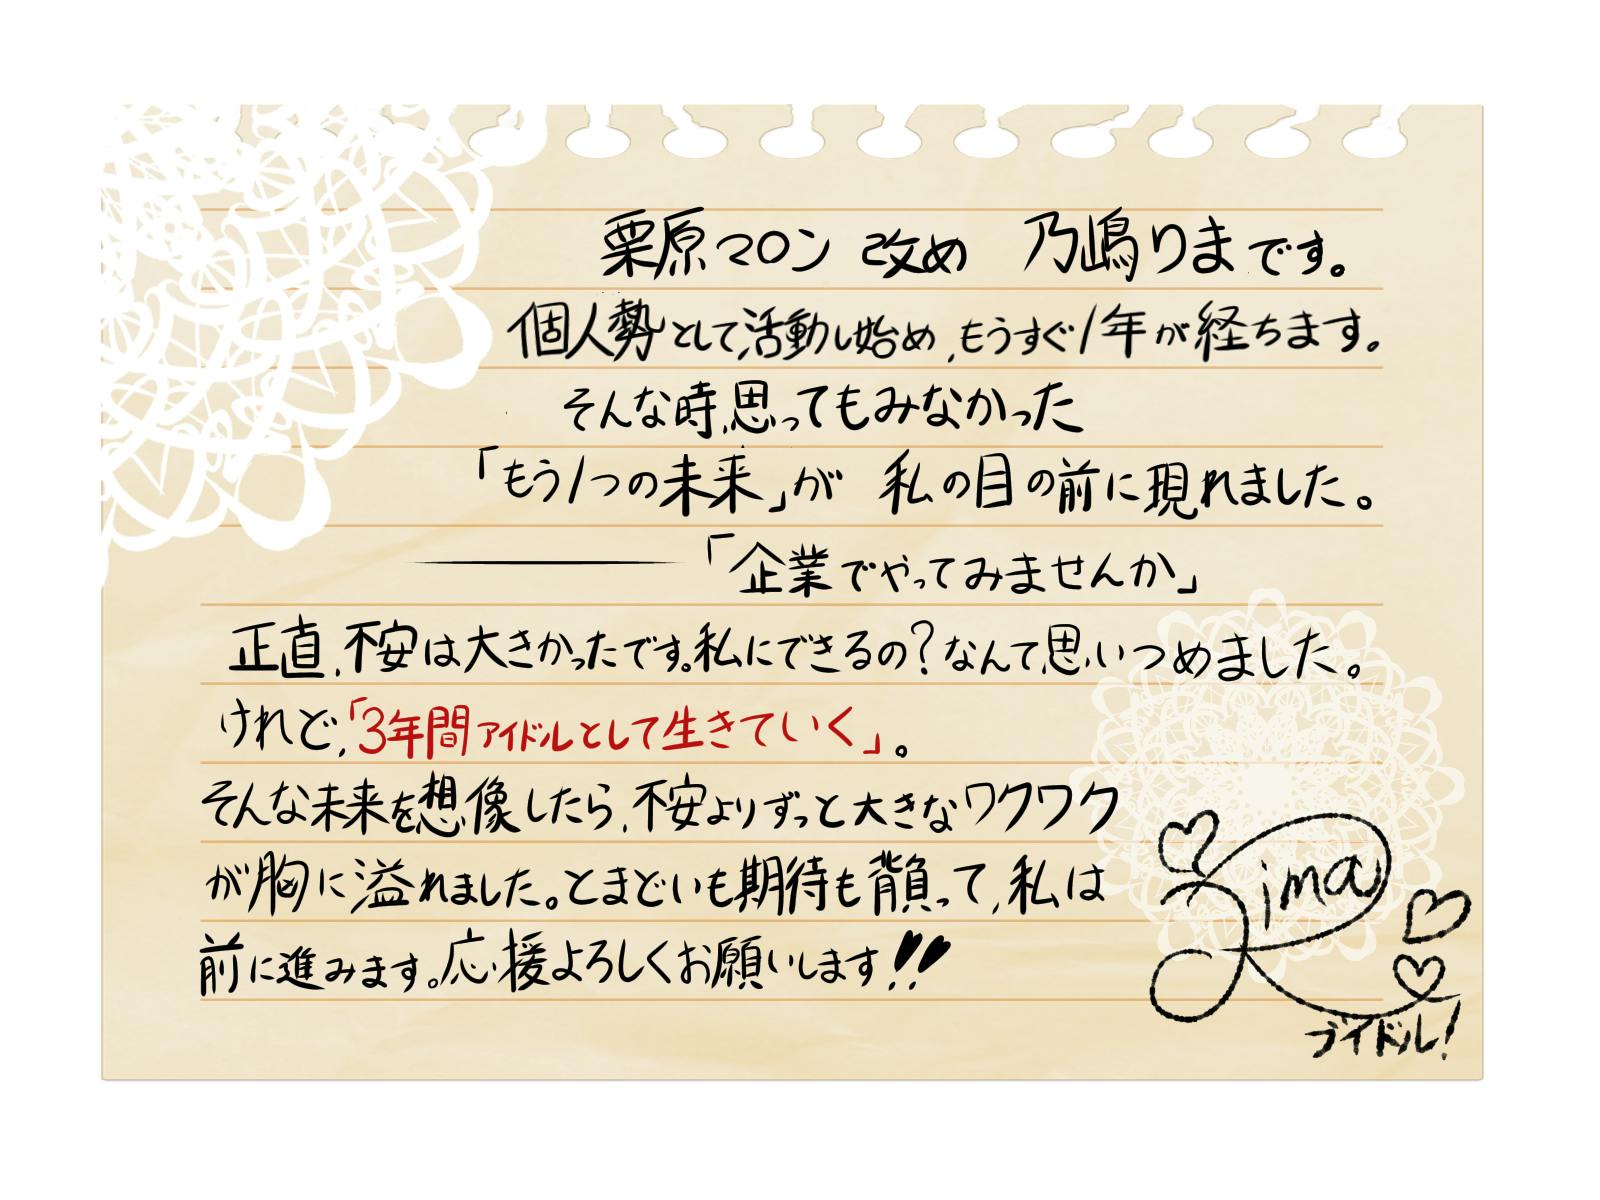 栗原マロン 改め 乃嶋りまです。
個人勢として活動し始め、もうすぐ1年が経ちます。
そんな時、思ってもみなかった
「もう1つの未来」が 私の目の前に現れました。
――「企業でやってみませんか」
正直、不安は大きかったです。私にできるの?なんて、思いつめました。
けれど、「3年間アイドルとして生きていく」。
そんな未来を想像したら、不安よりずっと大きなワクワク
が胸に溢れました。とまどいも期待も背負って、私は
前に進みます。応援よろしくお願いします!!
Rima
ブイドル!